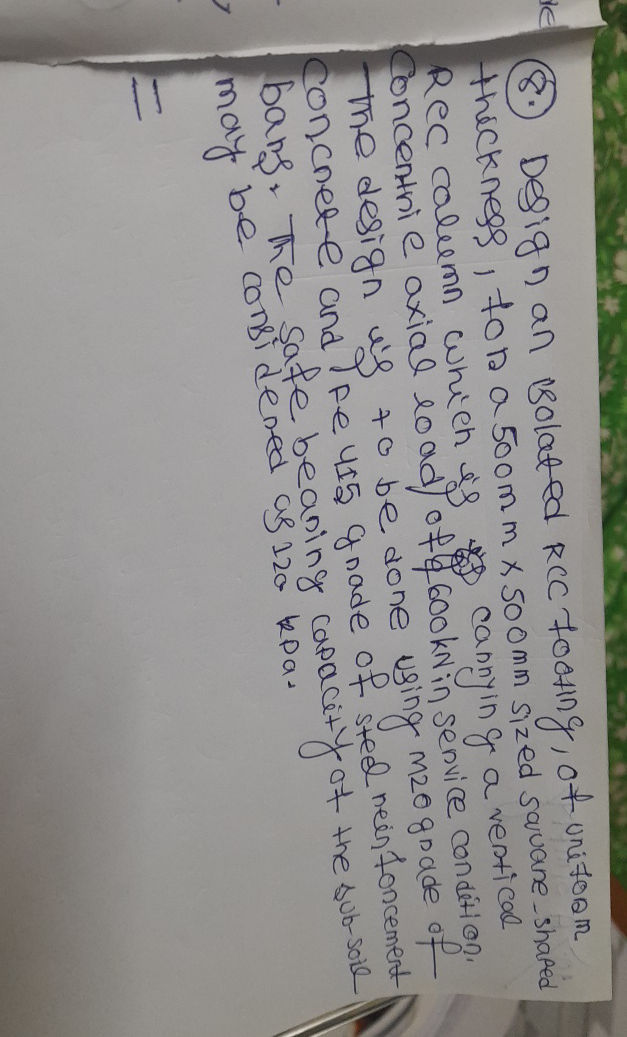 8. Design an isolated RCC footing, of uniform
thickness, for a 500mm x 500mm sized square-shaped
RCC column which is carrying a vertical
concentric axial load of 600kN in service condition.
The design is to be done using M20 grade of
concrete and Fe 415 grade of steel reinforcement
bars. The safe bearing capacity of the sub-soil
may be considered as 120 kpa.